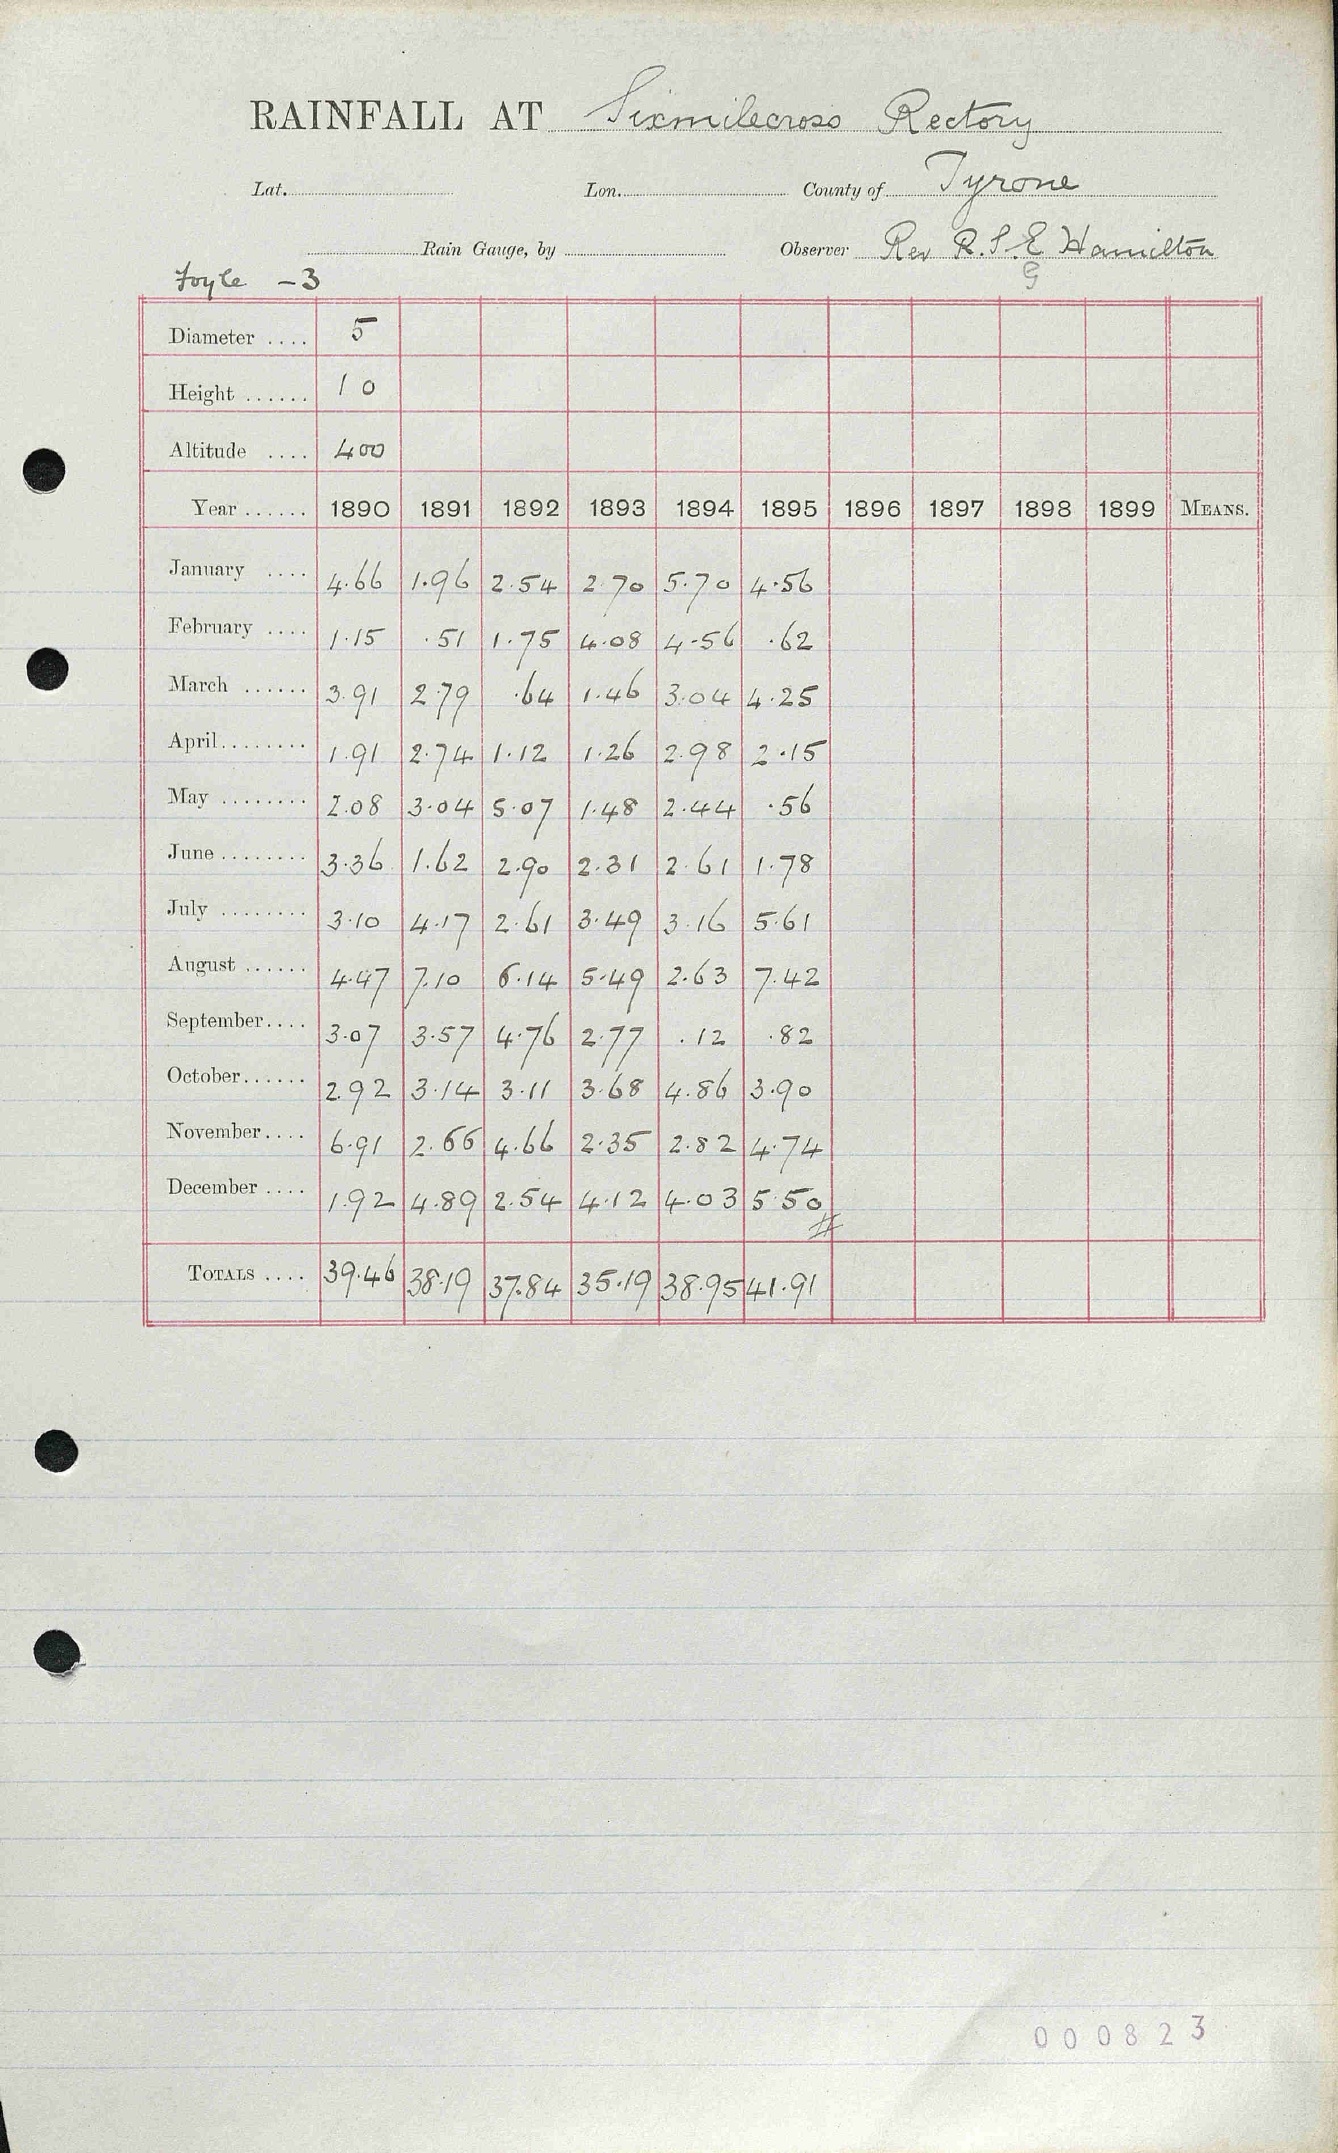 RAINFALL AT Sixmilecross Rectory
Lat. Lon. County of Tyrone
Rain Gauge, by Observer Rev R.S.E Hamilton
G
Foyle -3
Diameter .... 5
Height ...... 1 0
Altitude .... 400
Year ...... 1890 1891 1892 1893 1894 1895 1896 1897 1898 1899 MEANS.
January .... 4.66 1.96 2.54 2.70 5.70 4.56
February .... 1.15 .51 1.75 4.08 4.56 .62
March ...... 3.91 2.79 .64 1.46 3.04 4.25
April........ 1.91 2.74 1.12 1.26 2.98 2.15
May ........ 2.08 3.04 5.07 1.48 2.44 .56
June ........ 3.36 1.62 2.90 2.31 2.61 1.78
July ........ 3.10 4.17 2.61 3.49 3.16 5.61
August ...... 4.47 7.10 6.14 5.49 2.63 7.42
September.... 3.07 3.57 4.76 2.77 .12 .82
October...... 2.92 3.14 3.11 3.68 4.86 3.90
November.... 6.91 2.66 4.66 2.35 2.82 4.74
December .... 1.92 4.89 2.54 4.12 4.03 5.50
#
TOTALS .... 39.46 38.19 37.84 35.19 38.95 41.91
000823